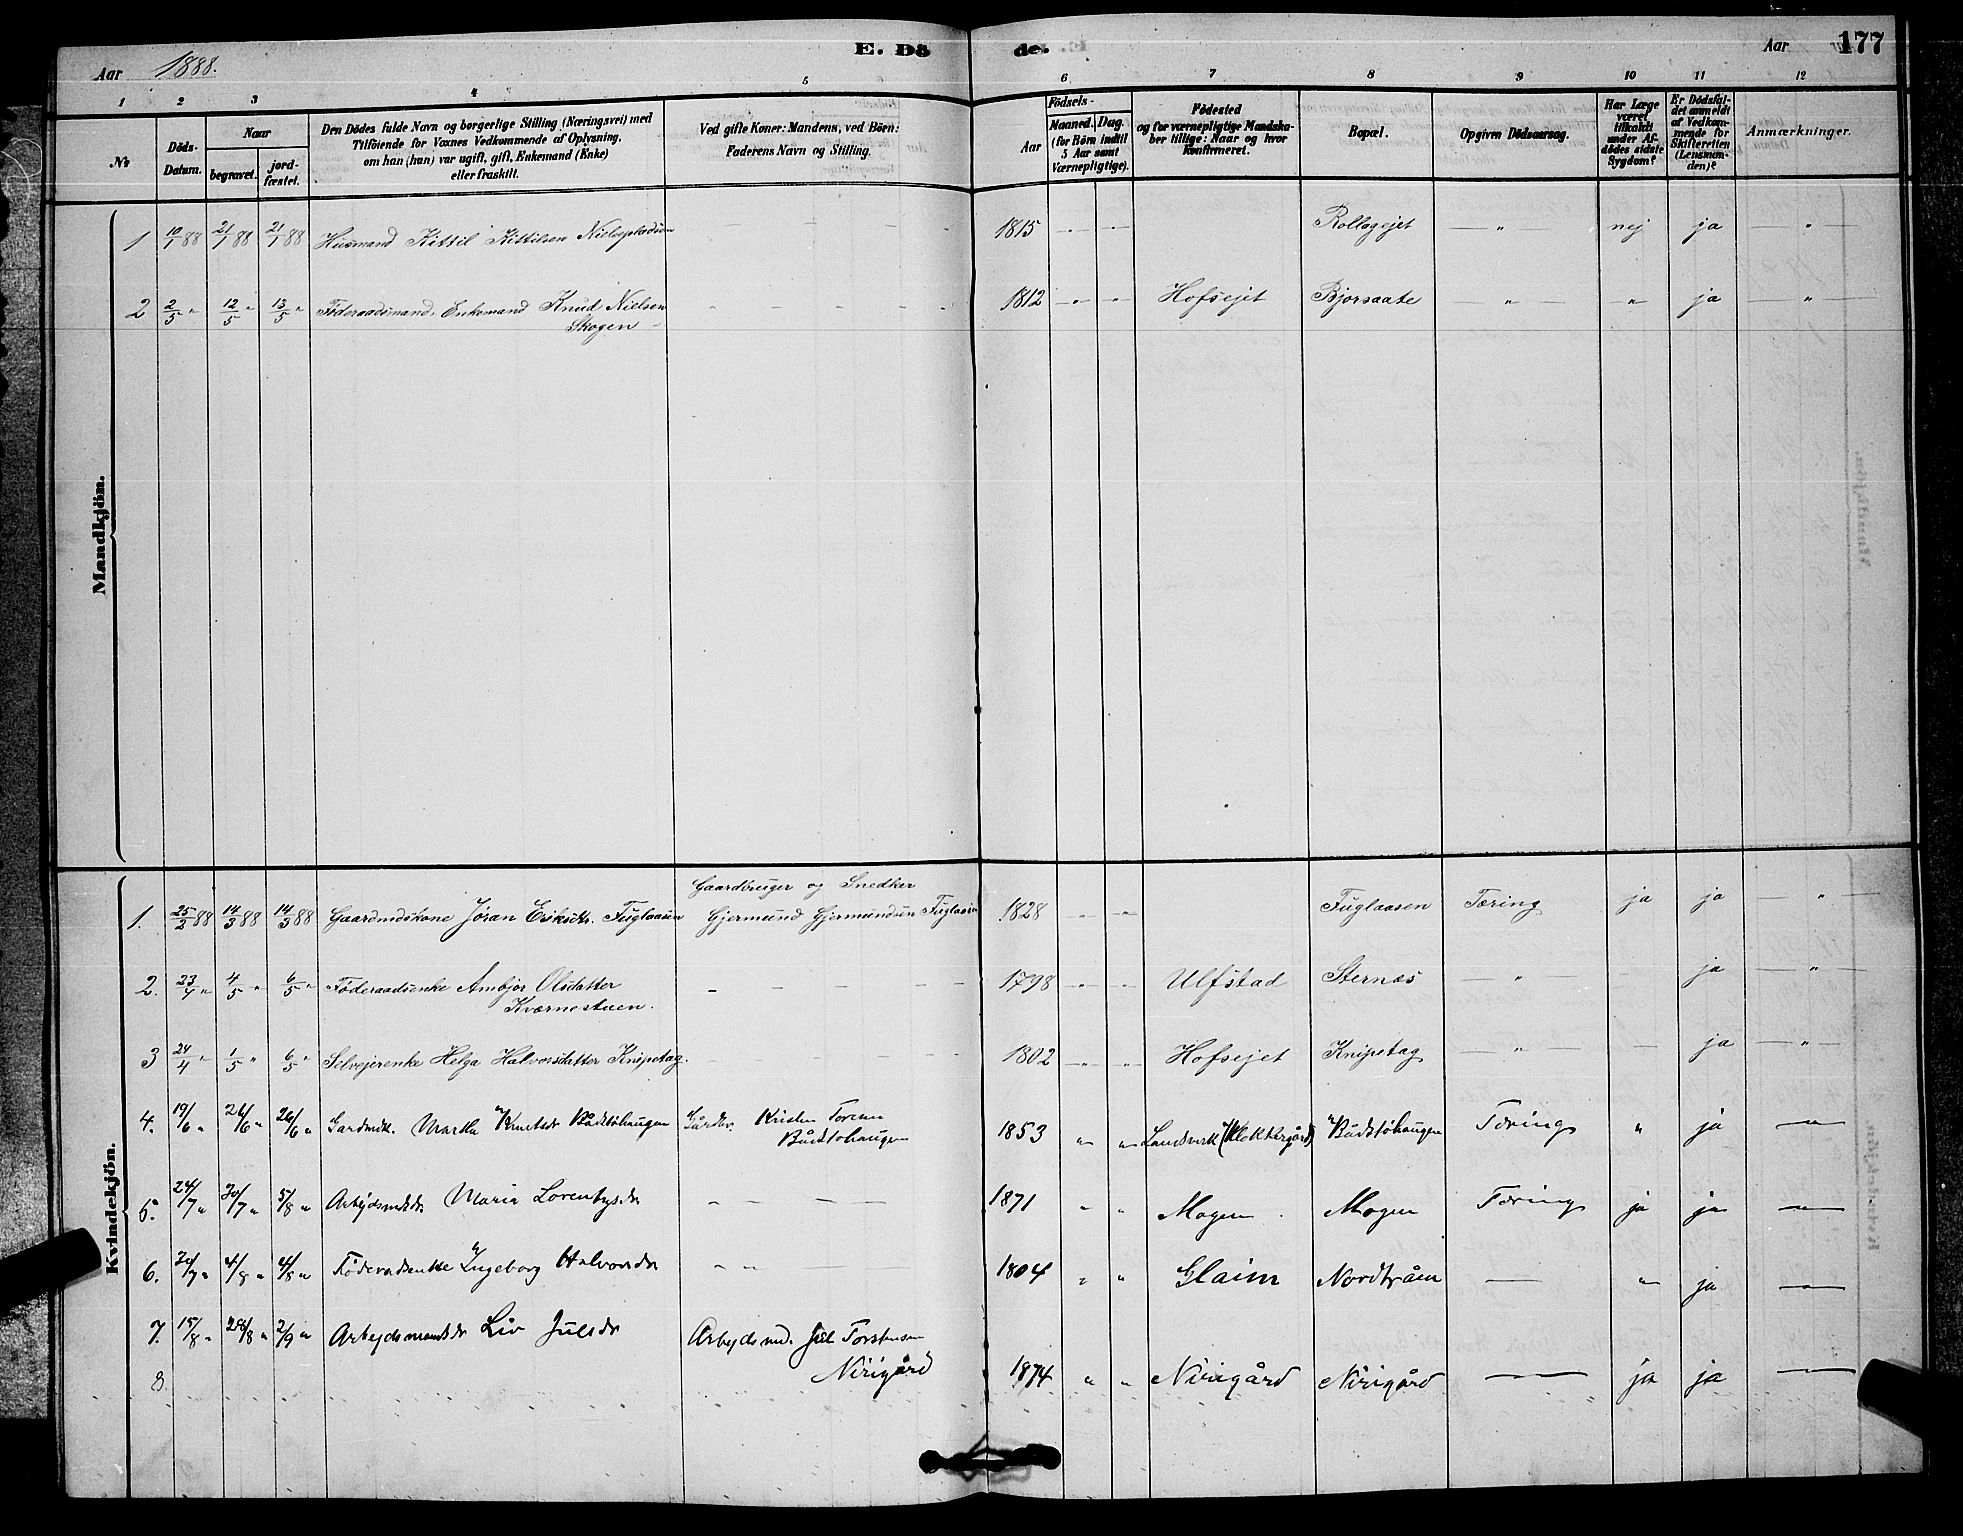 Aar 1888. E. Dö de. Aar 177
1 2 3 4 5 6 7 8 9 10 11 12
No
Döds-Datum.
Naar
begravet.
jord-fæstet.
Den Dödes fulde Navn og borgerlige Stilling (Næringsvei) med
Tilföiende for Voxnes Vedkommende af Oplysning,
om han (hun) var ugift, gift, Enkemand (Enke)
eller fraskilt.
Ved gifte Koner: Mandens, ved Börn:
Faderens Navn og Stilling.
Födsels-
Aar
Maaned. Dag.
(for Börn indtil
5 Aar samt
Værnepligtige).
Födested
og for værnepligtige Mandska-
ber tillige: Naar og hvor
konfirmeret.
Bopæl.
Opgiven Dödsaarsag.
Har Læge
været
tilkaldt
under Af-
dödes sidste
Sygdom?
Er Dödsfal-
det anmeldt
af Vedkom-
mende for
Skifteretten
(Lensman-
den)?
Anmærkninger.
Mandkjön.
1 10/1 88 21/1 88 21/1 88 Husmand Kittil Kittilsen Nielsepladsen — — — 1815 -"- -"- Rollagejet — " — nej ja — " —
2 2/5 " 12/5 " 13/5 " Föderaadsmand, Enkemand Knud Nielsen
Skogen — — — — 1812 -"- -"- Hofsejet Bjørsaate " — — " — ja "
Kvindekjön.
Gaardbruger og Snedker
1. 25/2 88 14/3 88 14/3 88 Gaardmdskone Jøran Eriksdtr. Fuglaasen Gjermund Gjermundsen Fuglaasen 1828 -"- -"- Fuglaasen Tæring ja ja — " —
2. 23/4 " 4/5 " 6/5 " Föderaadsenke Ambjør Olsdatter
Kværnestuen. — — — — 1798 -"- -"- Ulfstad Sternæs — " — ja — " —
3 24/4 " 1/5 " 6/5 " Selvejerenke Helga Halvorsdatter Knipetag. — — — 1802 -"- -"- Hofsejet Knipetag — " — — ja — " —
4. 19/6 " 26/6 " 26/6 " Gardmdk. Martha Knutsdr Bådstöhaugen Gårdbr. Kristen Toresen
Bådstöhaugen 1853 " " Landsverk (Klokkergård) Bådstöhaugen Tæring " ja — " —
5. 24/7 " 30/7 " 5/8 " Arbejdsmdsdr Maria Lorentsdr — — — 1871 " " Mogen Mogen Tæring ja ja — " —
6. 30/7 " 4/8 " 4/8 " Föderadsenke Ingeborg Halvorsdr — " — — 1804 " " Glaim Nordtråen — " ja —
7. 15/8 " 28/8 " 2/9 " Arbejdsmandsdr Liv Julsdr Arbejdsmd. Torstensen
Nirigård
8 1874 " " Nirigård Nirigård — ja ja —